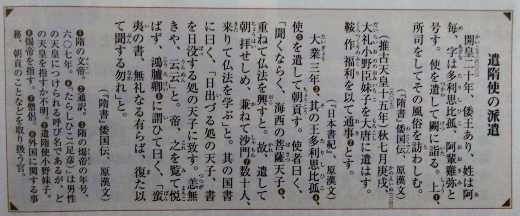 遣隋使の派遣
開皇二十年、倭王あり、姓は阿
毎、字は多利思比孤、阿輩雞弥と
号す。使を遣して闕に詣る。上❶、
所司をしてその風俗を訪わしむ。
（『隋書』倭国伝、原漢文）
（推古天皇十五年）秋七月庚戌、
大礼小野臣妹子を大唐に遣はす。
鞍作福利を以て通事❷とす。
（『日本書紀』、原漢文）
大業三年❸、其の王多利思比孤❹、
使❺を遣して朝貢す。使者曰く、
「聞くならく、海西の菩薩天子❻、
重ねて仏法を興すと。故、遣して
朝拝せしめ、兼ねて沙門❼数十人、
来りて仏法を学ぶ」と。其の国書
に曰く、「日出づる処の天子、書
を日没する処の天子に致す。恙無
きや、云云」と。帝、之を覧て悦
ばず、鴻臚卿❽に謂ひて曰く、「蛮
夷の書、無礼なる有らば、復た以
て聞する勿れ」と。
（『隋書』倭国伝、原漢文）
❶隋の文帝。❷通訳。❸隋の煬帝の年号、
六〇七年。❹「たらし（足）ひこ（彦）」は男性
の天皇につけられる呼び名であるが、ど
の天皇を指すか不明。❺遣隋使小野妹子。
❻煬帝を指す。❼僧侶。❽外国に関する事
務、朝貢のことなどを取り扱う官。